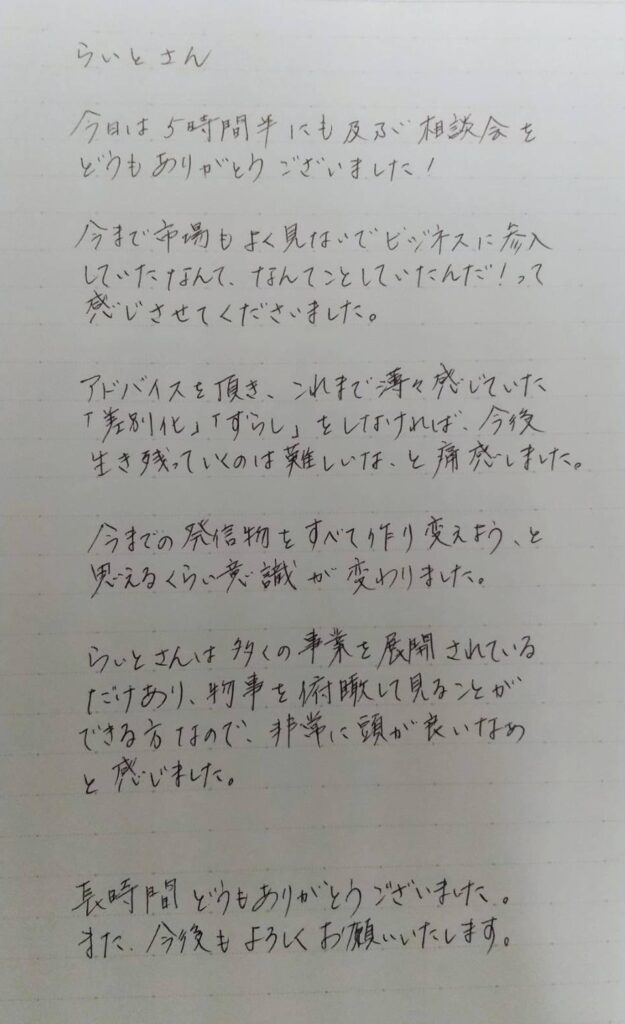 らいとさん
今日は5時間半にも及ぶ相談会を
どうもありがとうございました!
今まで市場もよく見ないでビジネスに参入
していたなんて、なんてことしていたんだ!って
感じさせてくださいました。
アドバイスを頂き、これまで薄々感じていた
「差別化」「ずらし」をしなければ、今後
生き残っていくのは難しいな、と痛感しました。
今までの発信物をすべて作り変えよう、と
思えるくらい意識が変わりました。
らいとさんは多くの事業を展開されている
だけあり、物事を俯瞰して見ることが
できる方なので、非常に頭が良いなぁ
と感じました。
長時間どうもありがとうございました。
また、今後もよろしくお願いいたします。